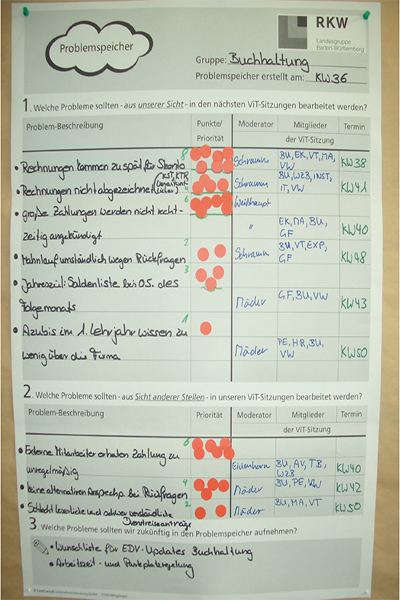 Problemspeicher
RKW
Landesgruppe
Baden-Württemberg
Gruppe: Buchhaltung
Problemspeicher erstellt am: KW36
1. Welche Probleme sollten - aus unserer Sicht - in den nächsten ViT-Sitzungen bearbeitet werden?
Problem-Beschreibung Punkte/ Priorität Moderator Mitglieder Termin
der ViT-Sitzung
8
• Rechnungen kommen zu spät für Skonto Schramm BU, EK, VT, MA, VW KW38
• Rechnungen nicht abgezeichnet (KST, KTR Schramm BU, WZB, INST, IT, VW KW41
6
• große Zahlungen werden nicht recht- Weithaupt
zeitig angekündigt " EK, MA, BU, GF KW40
2
• Mahnlauf umständlich wegen Rückfragen Schramm BU, VT, EXP, GF KW48
3
• Jahresziel: Saldenliste bei 05. des
Folgemonats Mäder GF, BU, VW KW43
1
• Azubis im 1. Lehrjahr wissen zu
wenig über die Firma Mäder PE, HR, BU, VW KW50
2. Welche Probleme sollten - aus Sicht anderer Stellen - in unseren ViT-Sitzungen bearbeitet werden?
Problem-Beschreibung Priorität Moderator Mitglieder Termin
der ViT-Sitzung
6
• Externe Mitarbeiter erhalten Zahlung zu
unregelmäßig Eichenhorn BU, AV, TB, WZB KW40
4
• keine alternativen Ansprechp. bei Rückfragen Mäder BU, PE, VW KW42
2
• Schlecht leserliche und schwer verständliche Mäder BU, MA, VT KW50
Dienstreiseanträge
3. Welche Probleme sollten wir zukünftig in den Problemspeicher aufnehmen?
• Wunschliste für EDV-Updates Buchhaltung
• Arbeitszeit- und Parkplatzregelung